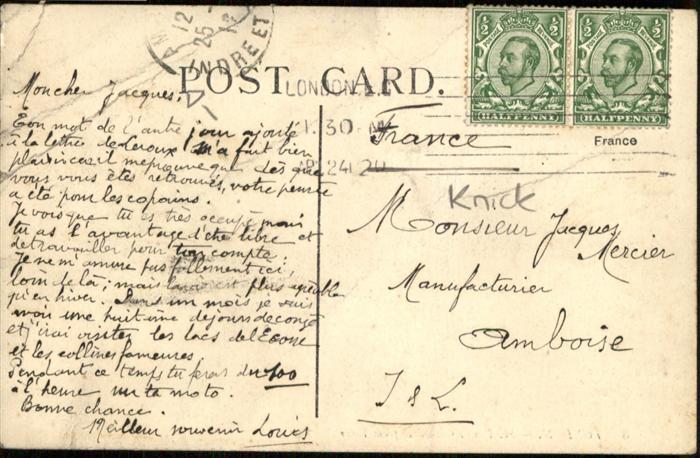 POST CARD.
LONDON
1.30
24
12
25
INDRE ET
½ ½
HALFPENNY
½ ½
HALFPENNY
Mon cher Jacques,
Ton mot de l'autre jour ajouté
à la lettre de Leroux m'a fait bien
plaisir car il me prouve que dès que
vous vous êtes retrouvés, votre pensée
a été pour les copains.
Je vois que tu es très occupé mais
tu as l'avantage d'être libre et
de travailler pour ton compte;
Je ne m'amuse pas follement ici,
loin de là; mais la vie est plus agréable
qu'en hiver. Dans un mois je vais
avoir une huitaine de jours de congé
et j'irai visiter les lacs de l'Ecosse
et les collines fameuses
Pendant ce temps tu feras du 100
à l'heure sur ta moto.
Bonne chance.
Meilleur souvenir Louis
France
France
Knick
Monsieur Jacques
Mercier
Manufacturier
Amboise
I & L.